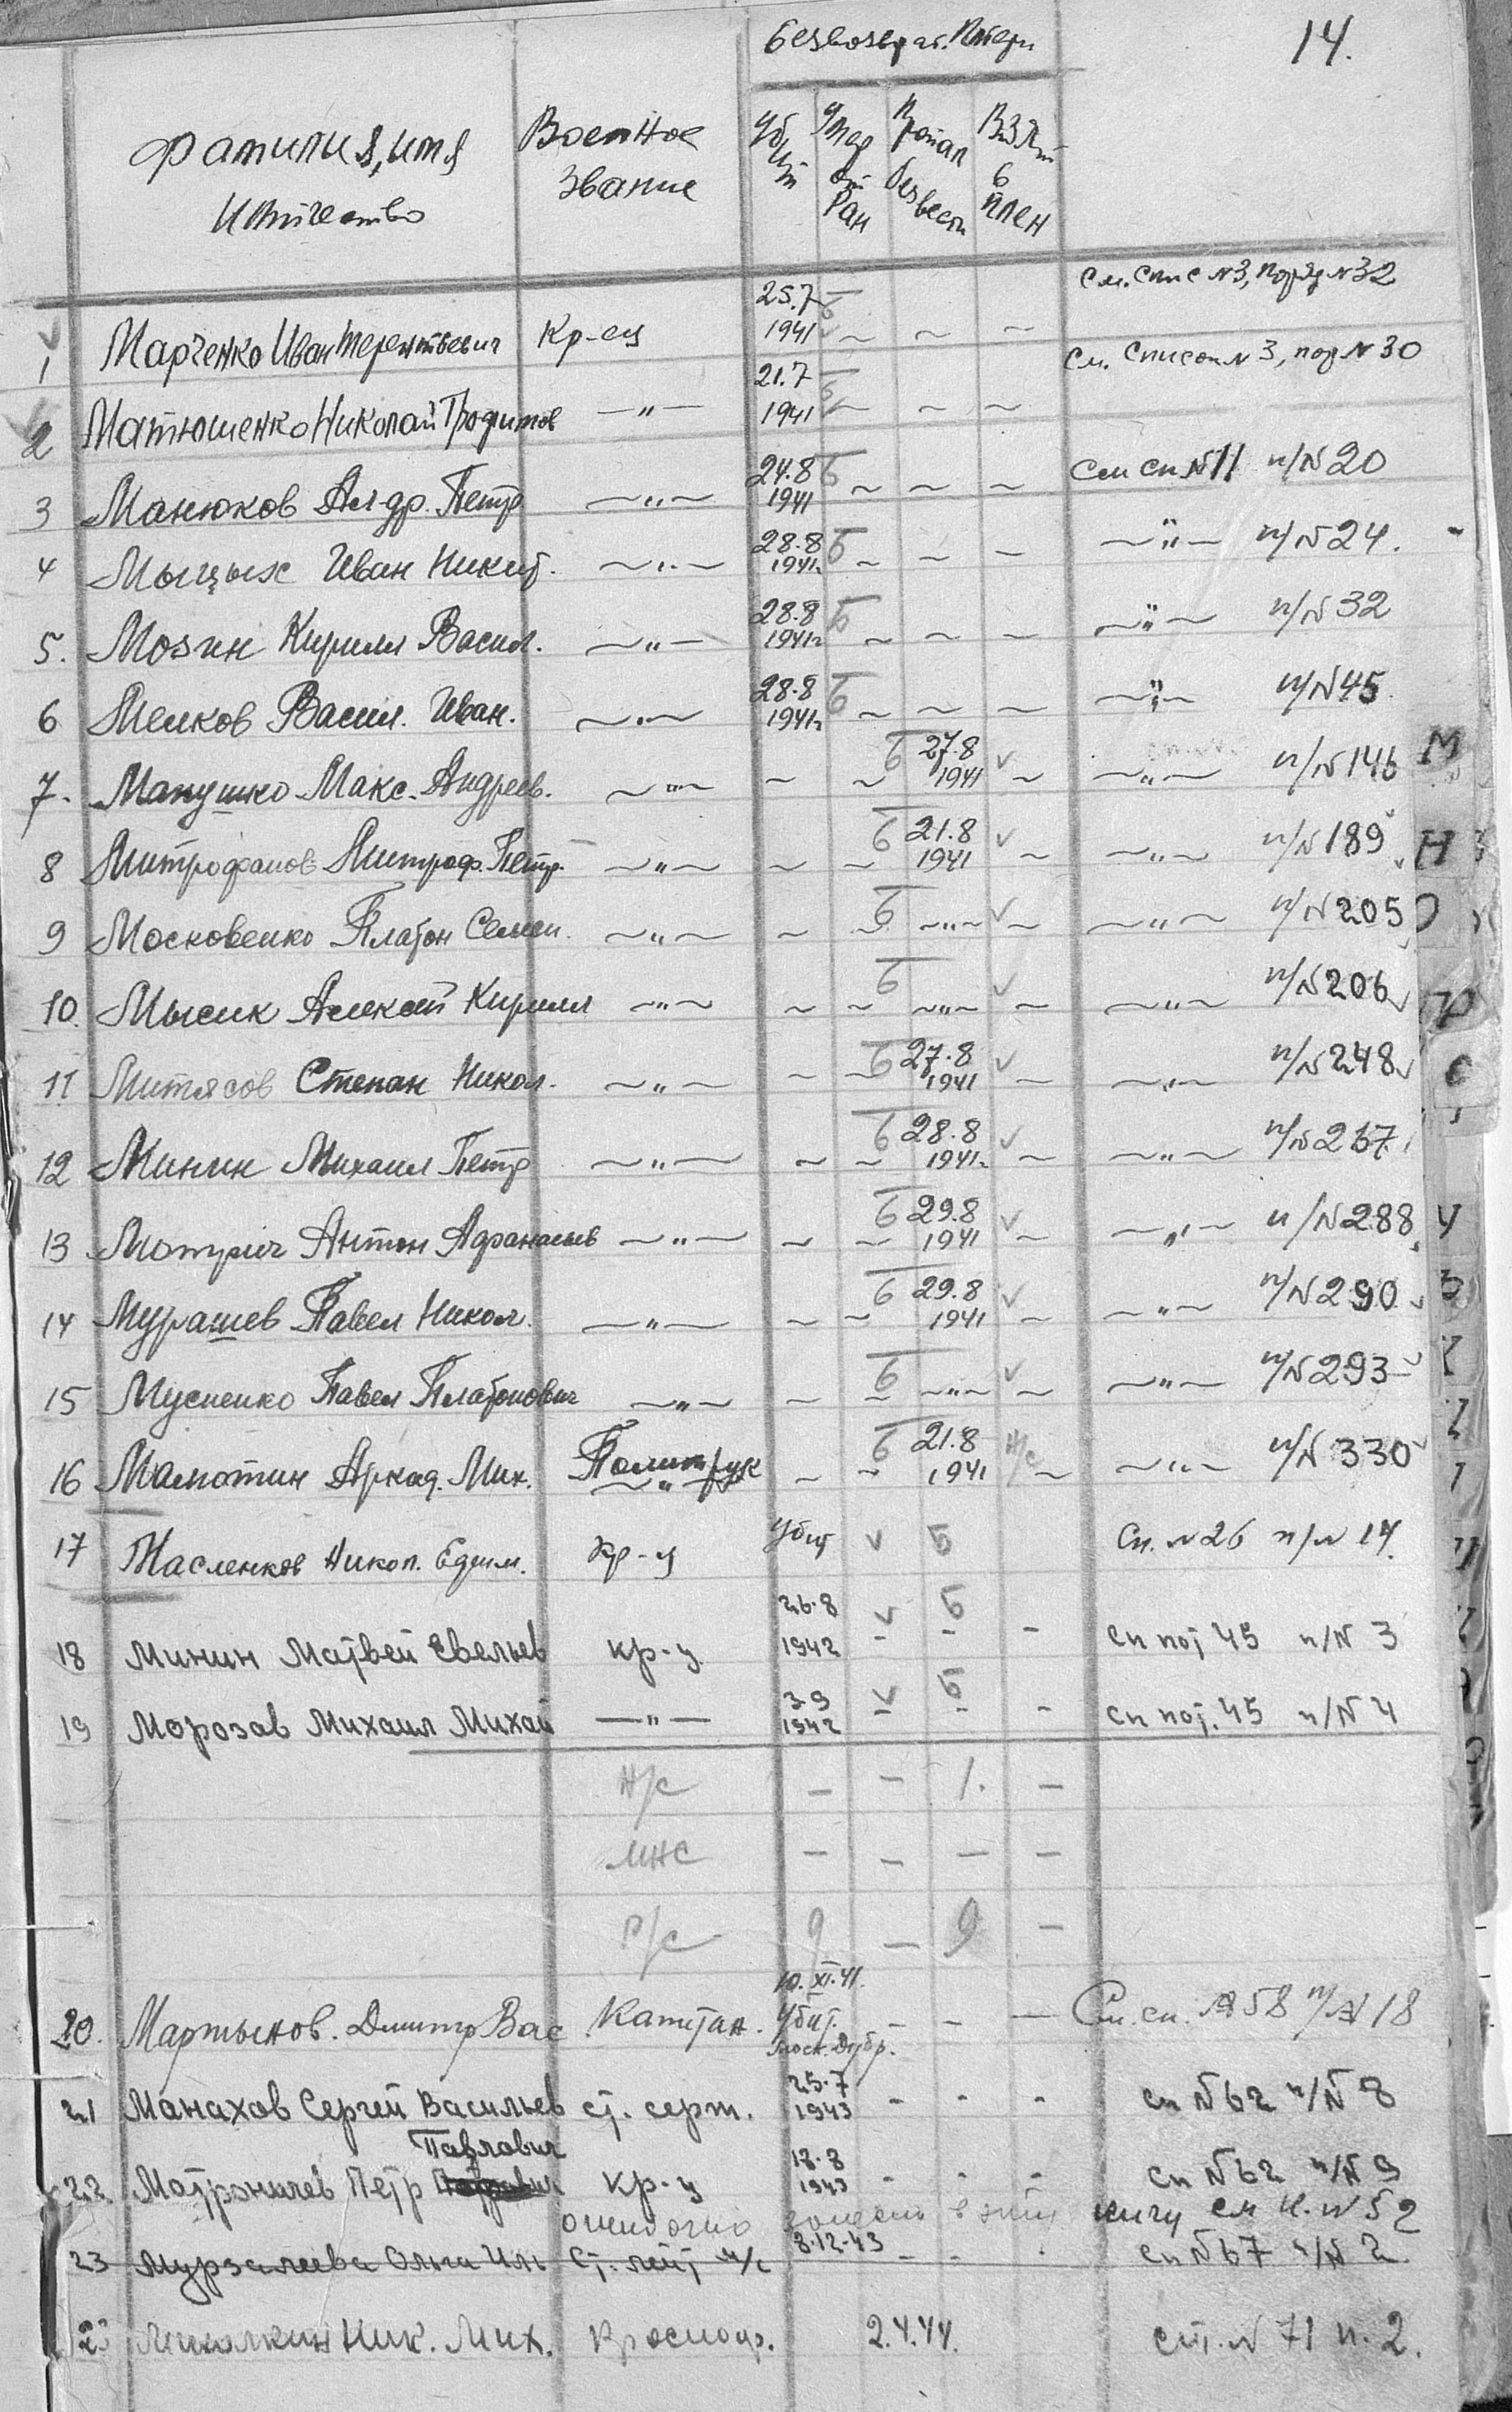 14.
Безвозврат. Потери
Фамилия, имя и отчество
Военное звание
Убит
Умер от ран
Пропал без вести
Взят в плен
1 Марченко Иван Терентьевич Кр-ец 25.7 1941 см. спис N3, пор N32
2 Матюшенко Николай Трофимов —"— 21.7 1941 см. список N 3, пор N 30
3 Манюков Ал-др. Петр —"— 24.8 1941 См сп N11 п/N 20
4 Мыцых Иван Никит. —"— 28.8 1941г —"— п/N 24.
5. Мозин Кирилл Васил. —"— 28.8 1941г —"— п/N 32
6 Мелков Васил. Иван. —"— 28.8 1941г —"— п/N 45
7. Манушко Макс. Андреев. —"— 27.8 1941 —"— п/N 146
8 Митрофанов Митроф. Петр. —"— 21.8 1941 —"— п/N 189
9 Московенко Платон Семен. —"— —"— —"— п/N 205
10. Мысик Алексей Кирилл —"— —"— —"— п/N 206
11 Митясов Степан Никол. —"— 27.8 1941 —"— п/N 248
12 Минин Михаил Петр —"— 28.8 1941г —"— п/N 267
13 Мотрич Антон Афанасьев —"— 29.8 1941 —"— п/N 288
14 Мурашев Павел Никол. —"— 29.8 1941 —"— п/N 290
15 Мусиенко Павел Платонович —"— —"— —"— п/N 293
16 Мамотин Аркад. Мих. Политрук 21.8 1941 Н/с —"— п/N 330
17 Масленков Никол. Ефим. Кр-ц Убит Б Сп. N 26 п/N 14.
18 Минин Матвей Савельев кр-ц 26.8 1942 Б сп пот 45 п/N 3
19 Морозов Михаил Михай —"— 3.9 1942 Б сп пот. 45 п/N 4
Н/с — — 1. —
МНС — — — —
Р/с 9 — 9 —
20. Мартынов. Дмитр Вас Капитан. 10.XI.41. Убит. Моск. Дубр. См. сп. N 58 п/N 18
21 Монахов Сергей Васильев ст. серж. 25.7 1943 сп N 62 п/N 8
Павлович
22 Петр кр-ц 18.8 1943 сп N 62 п/N 9
ошибочно занесен в эту книгу см Н. N 52
23 Мурзалева Ольга Иль ст. лейт м/с 8.12.43 сп N 67 п/N 2.
23 Ник. Мих. Красноар. 2.4.44. сп. N 71 п. 2.
М
Н
О
Р
С
У